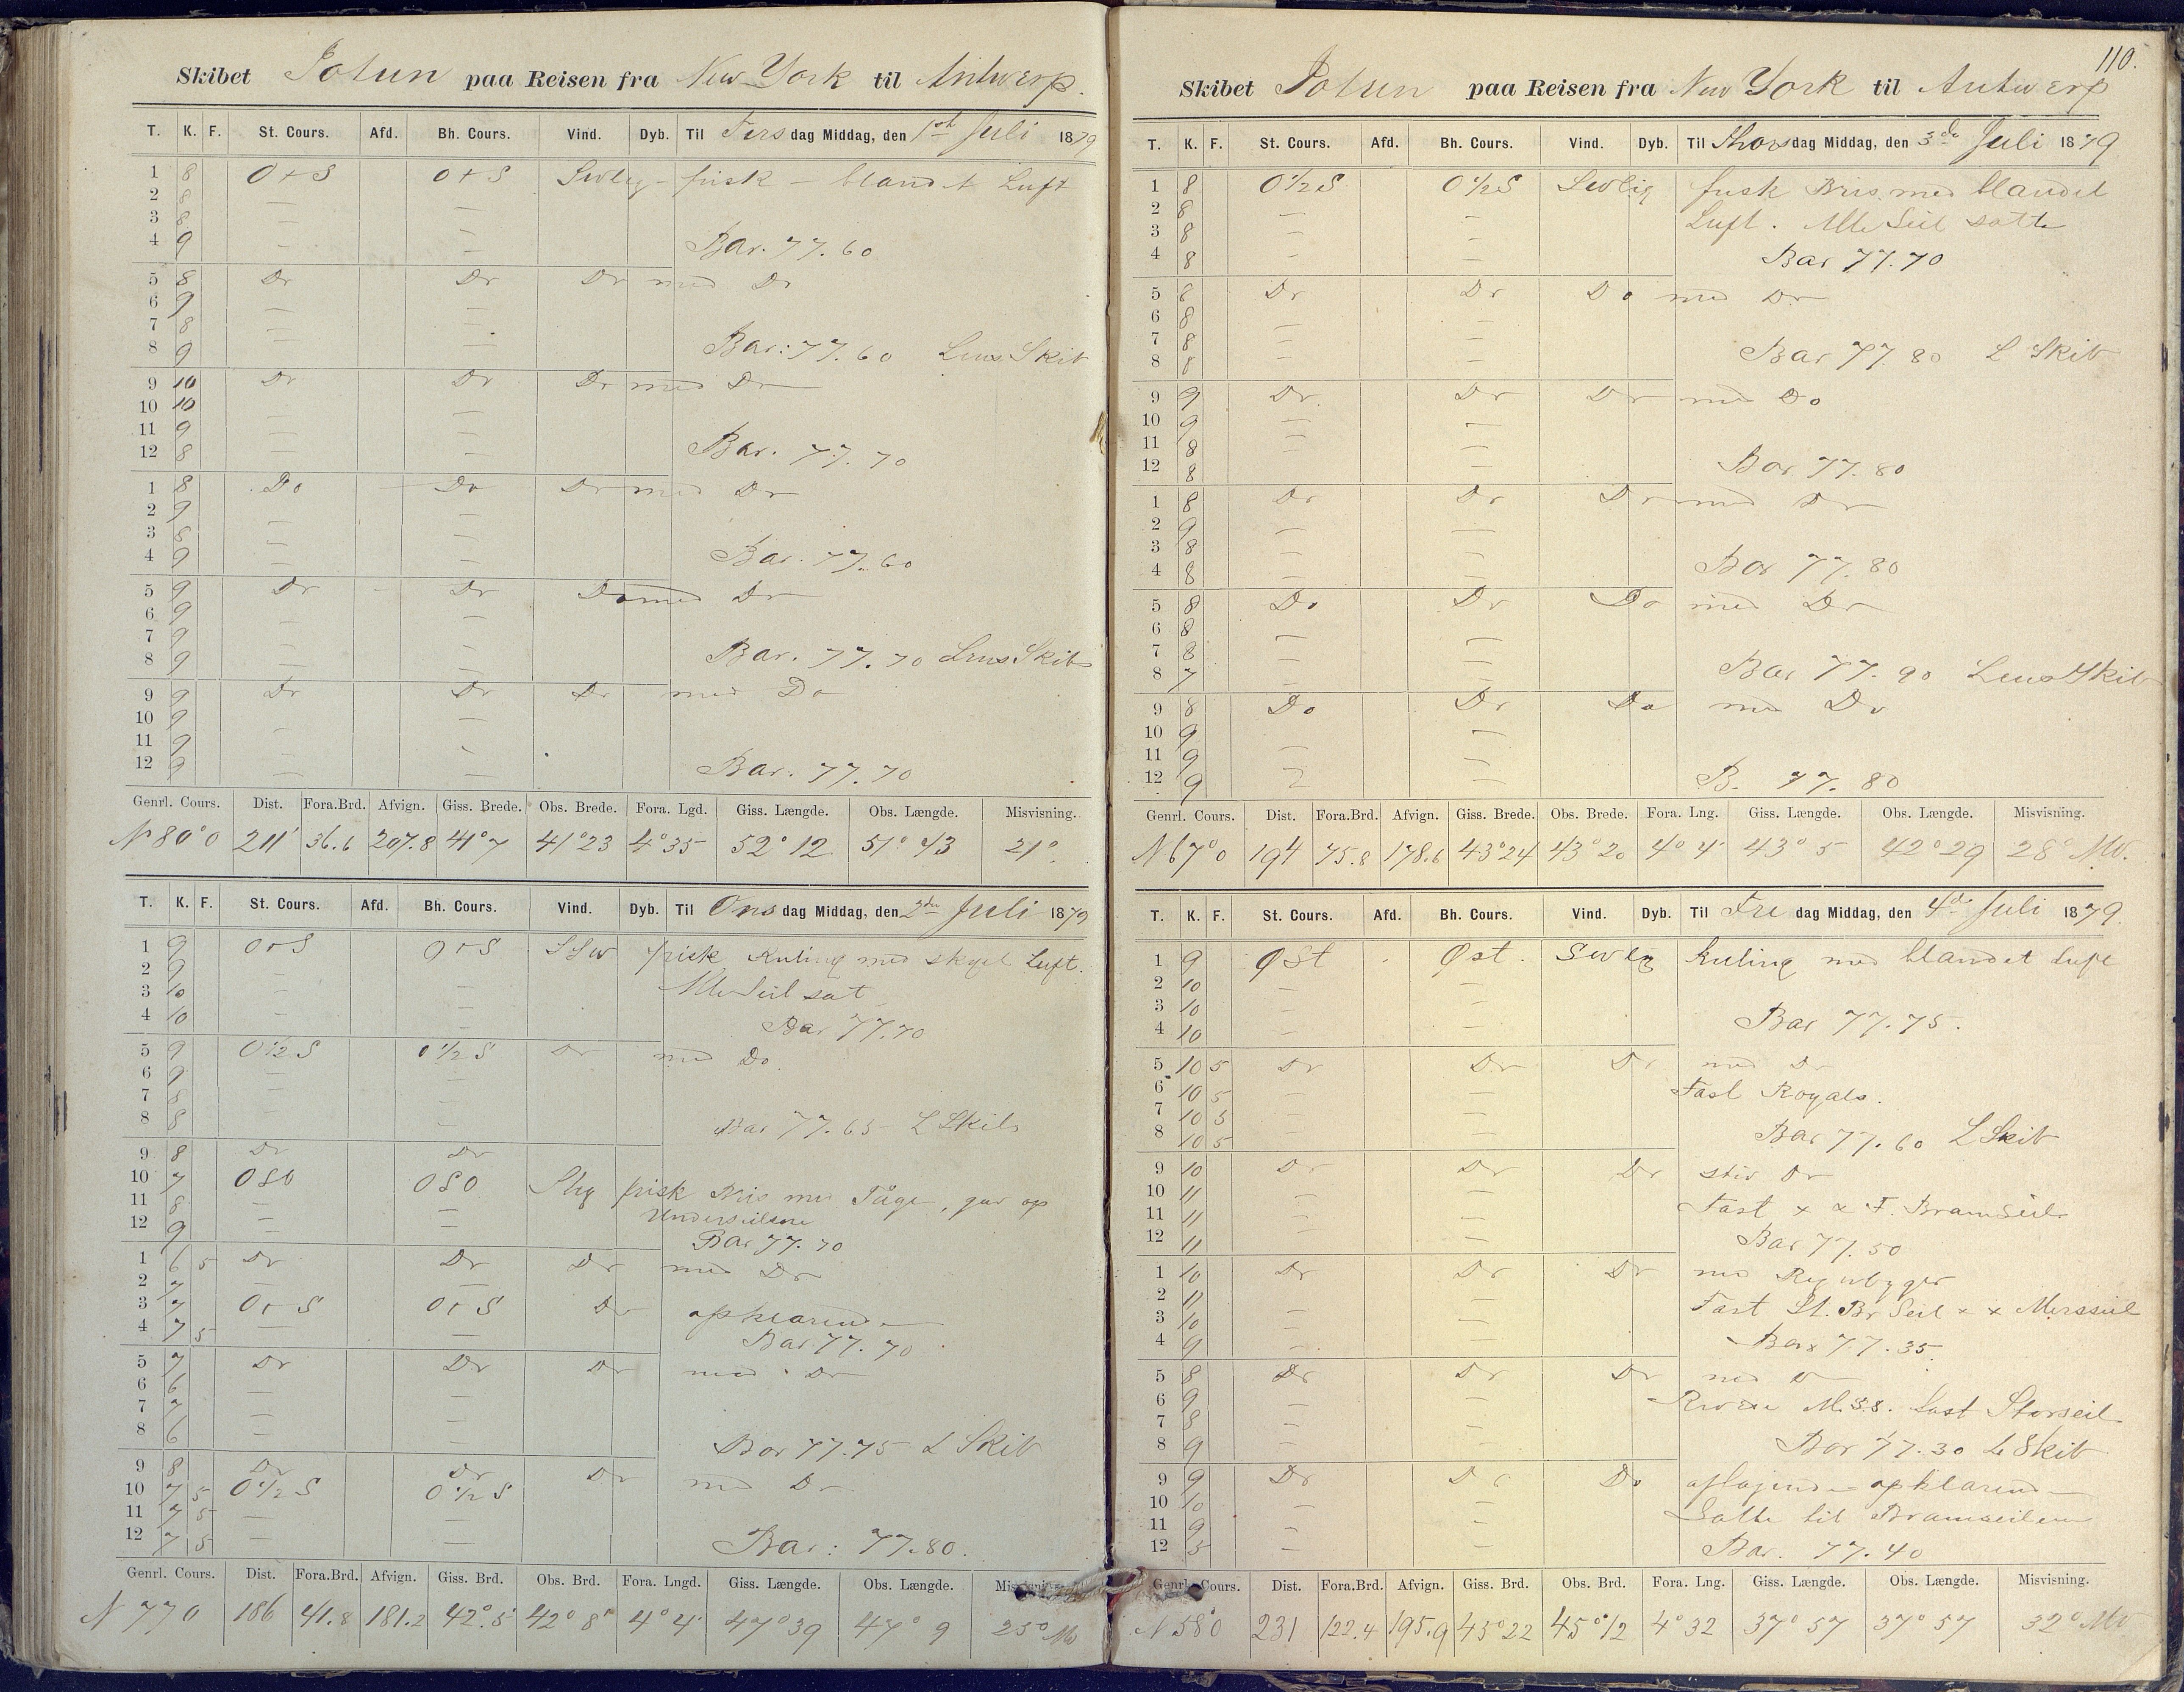 Skibet Jotun paa Reisen fra New York til Antwerp.
T. K. F. St. Cours. Afd. Bh. Cours. Vind. Dyb. Til Tirsdag Middag, den 1st Juli 1879
1 8 O t S O t S SWlig - frisk - blandet Luft
2 8 — —
3 8 — —
4 9 — — Bar. 77.60
5 8 Do Do Do med Do
6 9 — —
7 8 — —
8 9 — — Bar: 77.60 Lens Skib
9 10 Do Do Do med Do
10 10 — —
11 9 — —
12 8 — — Bar. 77.70
1 8 Do Do Do med Do
2 9 — —
3 8 — —
4 9 — — Bar. 77.60
5 9 Do Do Do med Do
6 9 — —
7 9 — —
8 9 — — Bar. 77.70 Lens Skib
9 9 Do Do Do med Do
10 9 — —
11 9 — —
12 9 — — Bar. 77.70
Genrl. Cours. Dist. Fora.Brd. Afvign. Giss. Brede. Obs. Brede. Fora. Lgd. Giss. Længde. Obs. Længde. Misvisning.
N 80° O 211' 36.6 207.8 41° 7 41° 23 4° 35 52° 12 51° 43 21°
T. K. F. St. Cours. Afd. Bh. Cours. Vind. Dyb. Til Onsdag Middag, den 2den Juli 1879
1 9 O t S O t S SSW frisk Kuling med skyet Luft.
2 9 — —
3 10 — — Alle Seil sat
4 10 — — Bar 77.70
5 9 O 1/2 S O 1/2 S Do med Do
6 9 — —
7 8 — —
8 8 — — Bar 77.65 L Skib
9 8 Do Do
10 7 OSO OSO Slig frisk Bris med Tåge, gav op
11 8 — — Underseilene
12 9 — — Bar 77.70
1 6 5 Do Do Do med Do
2 7 — —
3 7 O t S O t S Do opklarende
4 7 5 — — Bar 77.70
5 7 Do Do Do med Do
6 6 — —
7 7 — —
8 6 — — Bar 77.75 L Skib
9 8 Do Do Do med Do
10 7 5 O 1/2 S O 1/2 S
11 7 5 — —
12 7 5 — — Bar: 77.80.
Genrl. Cours. Dist. Fora.Brd. Afvign. Giss. Brd. Obs. Brd. Fora. Lngd. Giss. Længde. Obs. Længde.
N 77 O 186 41.8 181.2 42° 5' 42° 8' 4° 4' 47° 39 47° 9 25° Mv
110.
Skibet Jotun paa Reisen fra New York til Antwerp
T. K. F. St. Cours. Afd. Bh. Cours. Vind. Dyb. Til Thorsdag Middag, den 3de Juli 1879
1 8 O 1/2 S O 1/2 S SWlig frisk Bris med blandet
2 8 — — Luft. Alle Seil satte
3 8 — —
4 8 — — Bar 77.70
5 8 Do Do Do med Do
6 8 — —
7 8 — —
8 8 — — Bar 77.80 L Skib
9 9 Do Do Do med Do
10 9 — —
11 8 — —
12 8 — — Bar 77.80
1 8 Do Do Do med Do
2 9 — —
3 8 — —
4 8 — — Bar 77.80
5 8 Do Do Do med Do
6 8 — —
7 8 — —
8 7 — — Bar 77.90 Lens Skib
9 8 Do Do Do med Do
10 9 — —
11 9 — —
12 9 — — B. 77.80
Genrl. Cours. Dist. Fora.Brd. Afvign. Giss. Brede. Obs. Brede. Fora. Lng. Giss. Længde. Obs. Længde. Misvisning.
N 67° O 194 75.8 178.6 43° 24 43° 20 4° 4' 43° 5 42° 29 28° Mv.
T. K. F. St. Cours. Afd. Bh. Cours. Vind. Dyb. Til Fredag Middag, den 4de Juli 1879.
1 9 Øst Øst. SWlig Kuling med blandet Luft
2 10 — —
3 10 — —
4 10 — — Bar 77.75.
5 10 5 Do Do Do med Do
6 10 5 — — Fast Royals.
7 10 5 — —
8 10 5 — — Bar 77.60 L Skib
9 10 Do Do Do stiv Do
10 11 — —
11 11 — — Fast x & F. Bramseil
12 11 — — Bar 77.50
1 10 Do Do Do med Regnbyger
2 11 — — Fast St. Br Seil x x Mersseil
3 10 — —
4 9 — — Bar 77.35
5 8 Do Do Do med Do
6 9 — — M.S.S. fast Storseil
7 8 — —
8 9 — — Bar 77.30 L Skib
9 9 Do Do Do afløjende opklarende
10 10 — —
11 9 — — Satte til Bramseilene
12 5 — — Bar. 77.40
Genrl. Cours. Dist. Fora.Brd. Afvign. Giss. Brd. Obs. Brd. Fora. Lng. Giss. Længde. Obs. Længde. Misvisning.
N 58° O 231 122.4 195.9 45° 22 45° 12 4° 32 37° 57 37° 57 32° Mv